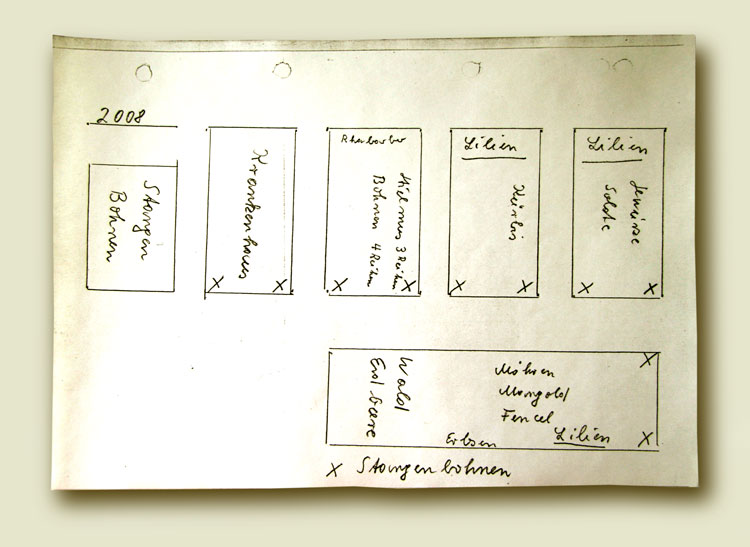 2008
Stangen
Bohnen
Krankenhaus
Rhabarber
Stielmus 3 Reihen
Bohnen 4 Reihen
Lilien
Kürbis
Lilien
Gemüse
Salate
Wald
Erdbeere
Möhren
Mangold
Fencel
Erbsen
Lilien
x Stangenbohnen